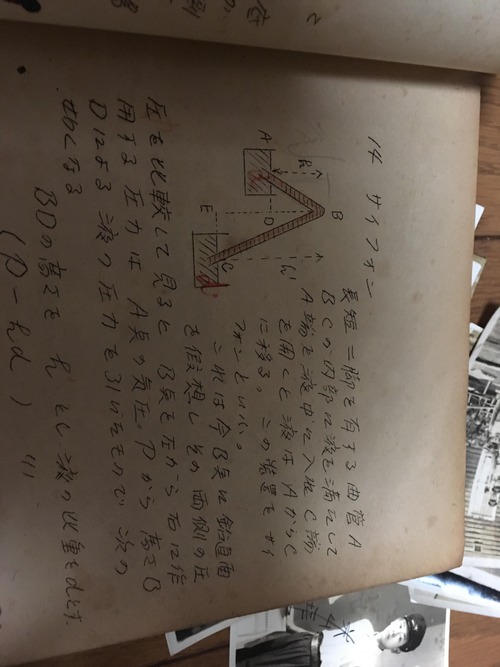 14 サイフォン
長短二脚を有する曲管A
BCの内部に液を満たして
A端を液中に入れC端
を開くと液はAからC
に移る。この装置をサイ
フォンといふ。
これは今B点に鉛直面
を仮想しその両側の圧
圧を比較して見ると B点を左から右に作
用する圧力は A点の気圧Pから高さB
Dによる液の圧力を引いたもので 次の
せ になる
BDの高さを h とし液の比重をdとすれ
(P-hd)
(1)
A
B
C
D
E
h
h'